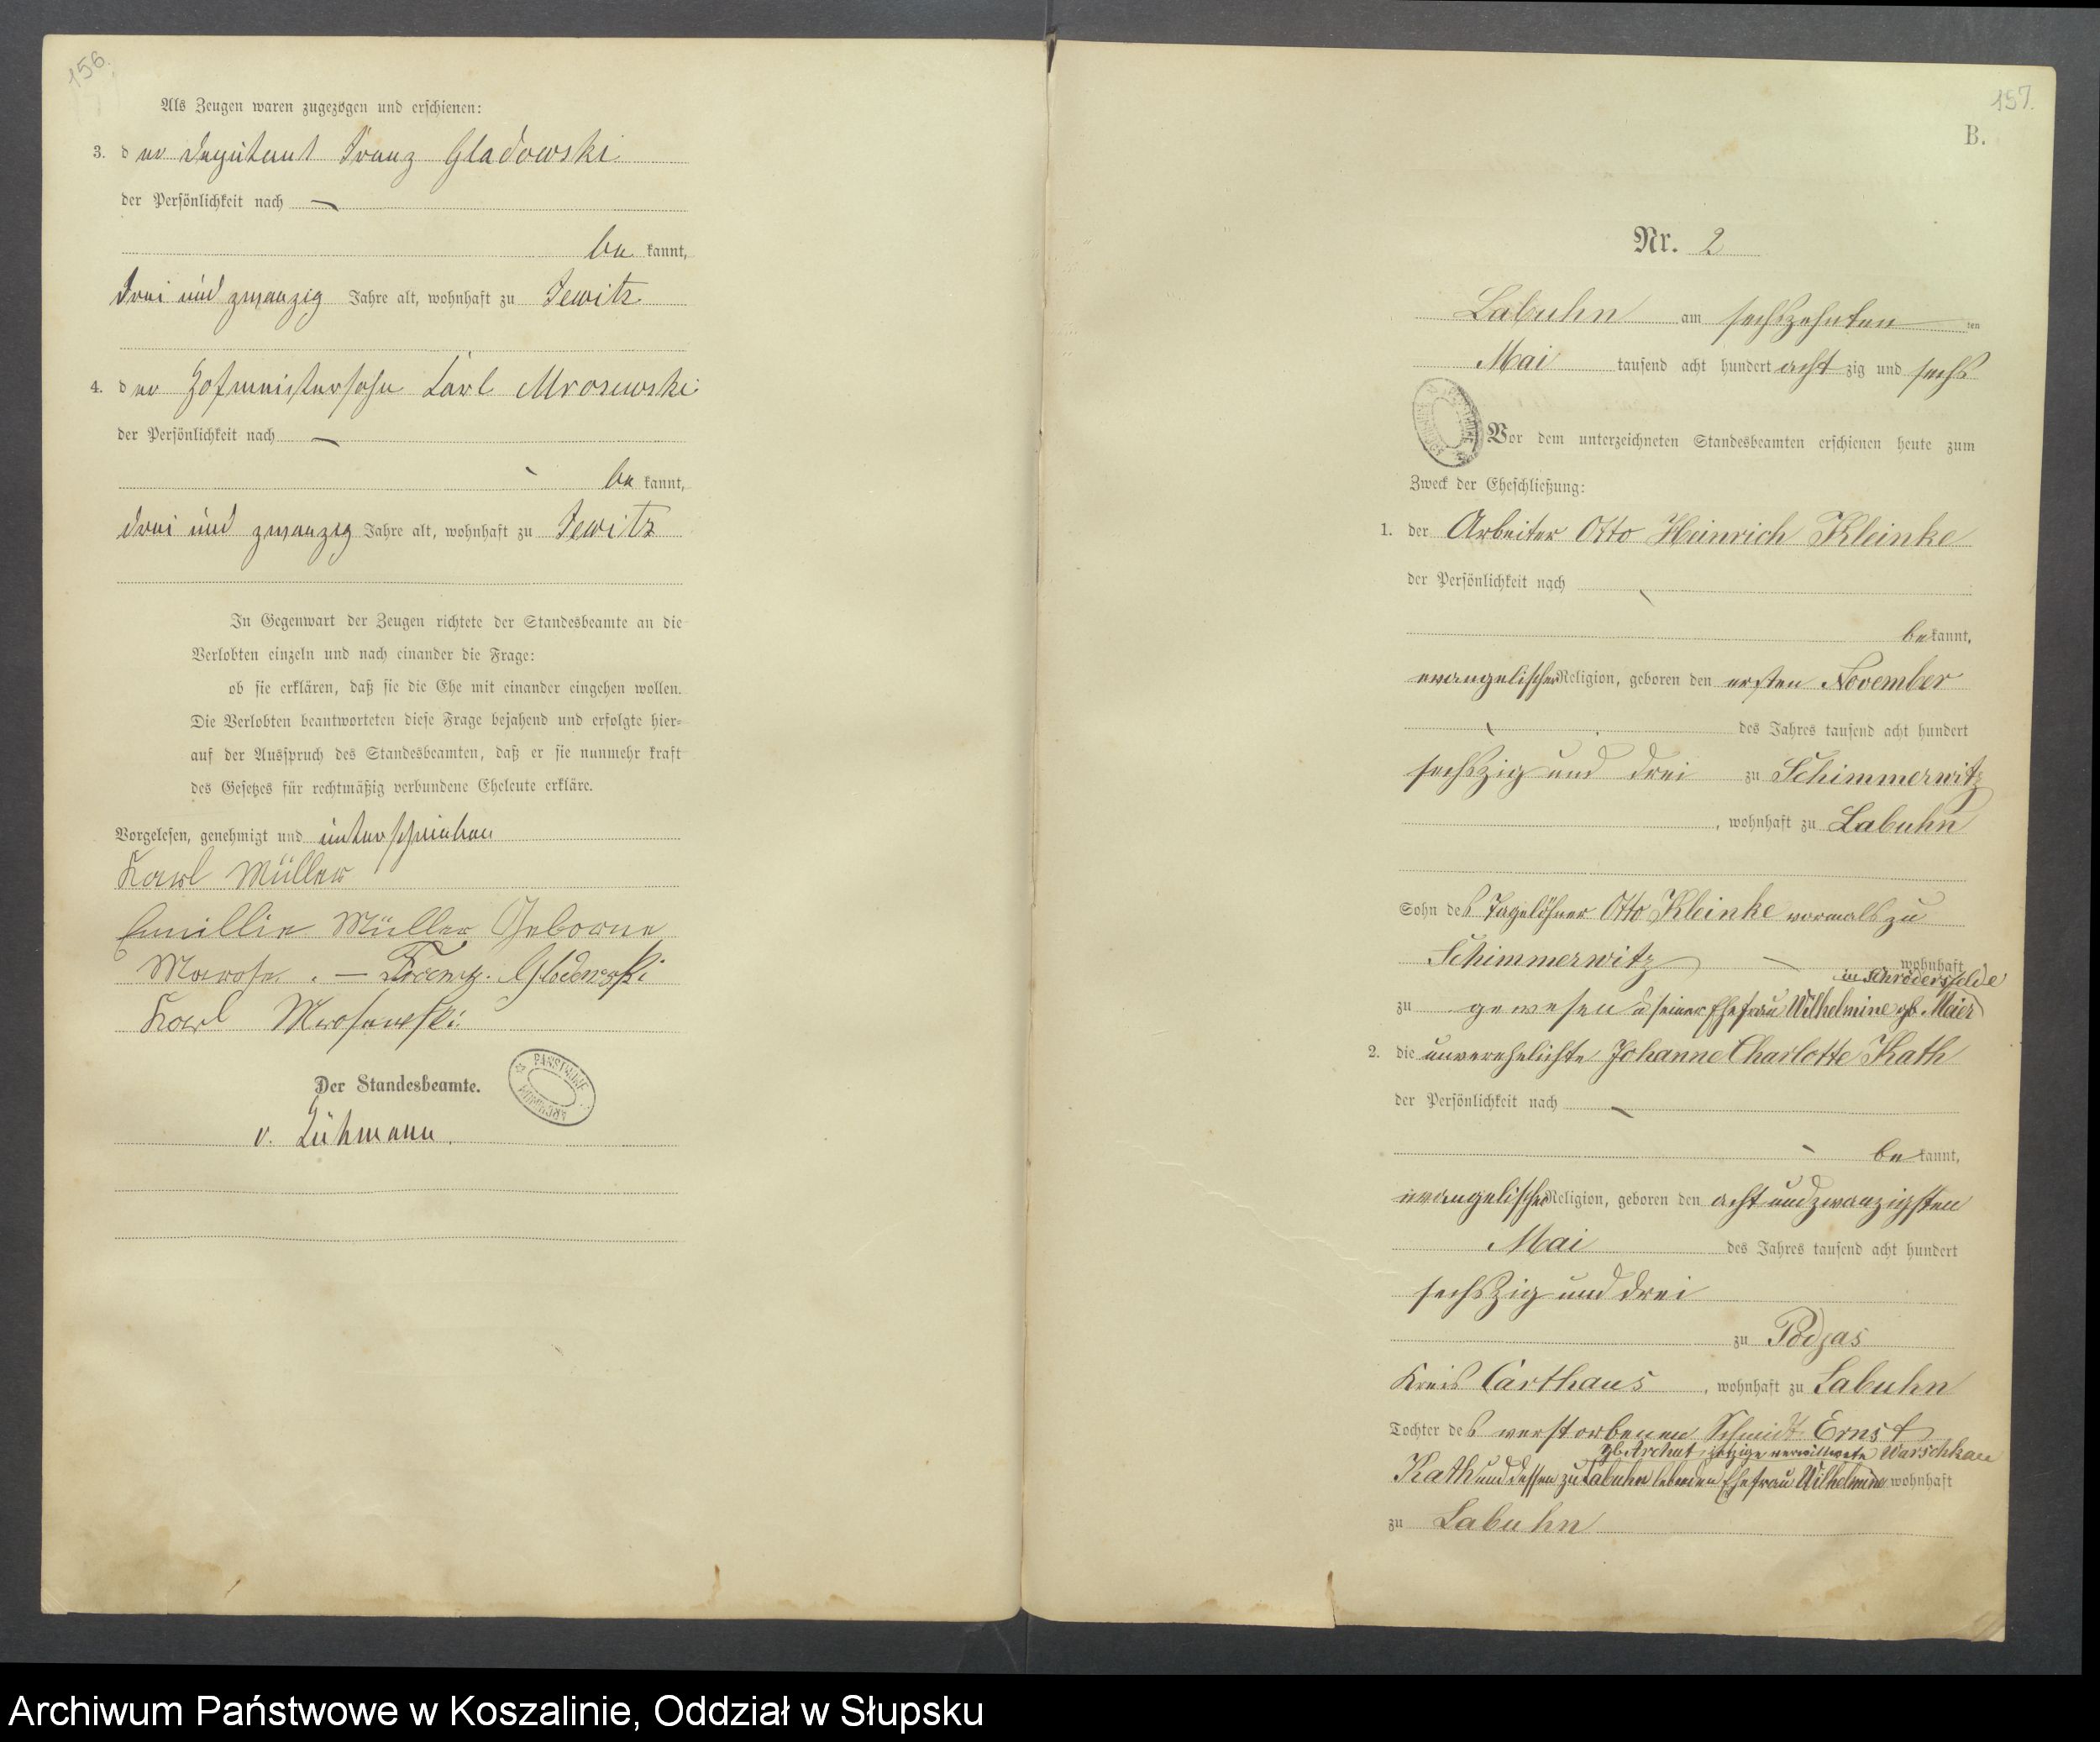 156.
Als Zeugen waren zugezogen und erschienen:
3. der Deputant Franz Gladowski
der Persönlichkeit nach —
be kannt,
drei und zwanzig Jahre alt, wohnhaft zu Jewitz
4. der Hofmeistersohn Carl Mrosewski
der Persönlichkeit nach —
be kannt,
drei und zwanzig Jahre alt, wohnhaft zu Jewitz
In Gegenwart der Zeugen richtete der Standesbeamte an die
Verlobten einzeln und nach einander die Frage:
ob sie erklären, daß sie die Ehe mit einander eingehen wollen.
Die Verlobten beantworteten diese Frage bejahend und erfolgte hier-
auf der Ausspruch des Standesbeamten, daß er sie nunmehr kraft
des Gesetzes für rechtmäßig verbundene Eheleute erkläre.
Vorgelesen, genehmigt und unterschrieben
Karl Müller
Emillie Müller Geborne
— Franz Gladowski
Karl Mrosewski
Der Standesbeamte.
v. Lühmann.
157.
B.
Nr. 2
Labuhn am sechszehnten ten
Mai tausend acht hundert acht zig und sechs
Vor dem unterzeichneten Standesbeamten erschienen heute zum
Zweck der Eheschließung:
1. der Arbeiter Otto Heinrich Kleinke
der Persönlichkeit nach
be kannt,
evangelischer Religion, geboren den ersten November
des Jahres tausend acht hundert
sechszig und drei zu Schimmerwitz
, wohnhaft zu Labuhn
Sohn des Tagelöhner Otto Kleinke vormals zu
Schimmerwitz wohnhaft
in Schrödersfelde
zu gewesen u seiner Ehefrau Wilhelmine gb. Maier
2. die unverehelichte Johanne Charlotte Kath
der Persönlichkeit nach —
be kannt,
evangelischer Religion, geboren den acht und zwanzigsten
Mai des Jahres tausend acht hundert
sechszig und drei
zu Podjas
Kreis Carthaus , wohnhaft zu Labuhn
Tochter des verstorbenen Schmidt Ernst
gb. jetzige verwittwete Warschkau
Kath und dessen zu Labuhn lebenden Ehefrau Wilhelmine wohnhaft
zu Labuhn
Archiwum Państwowe w Koszalinie, Oddział w Słupsku